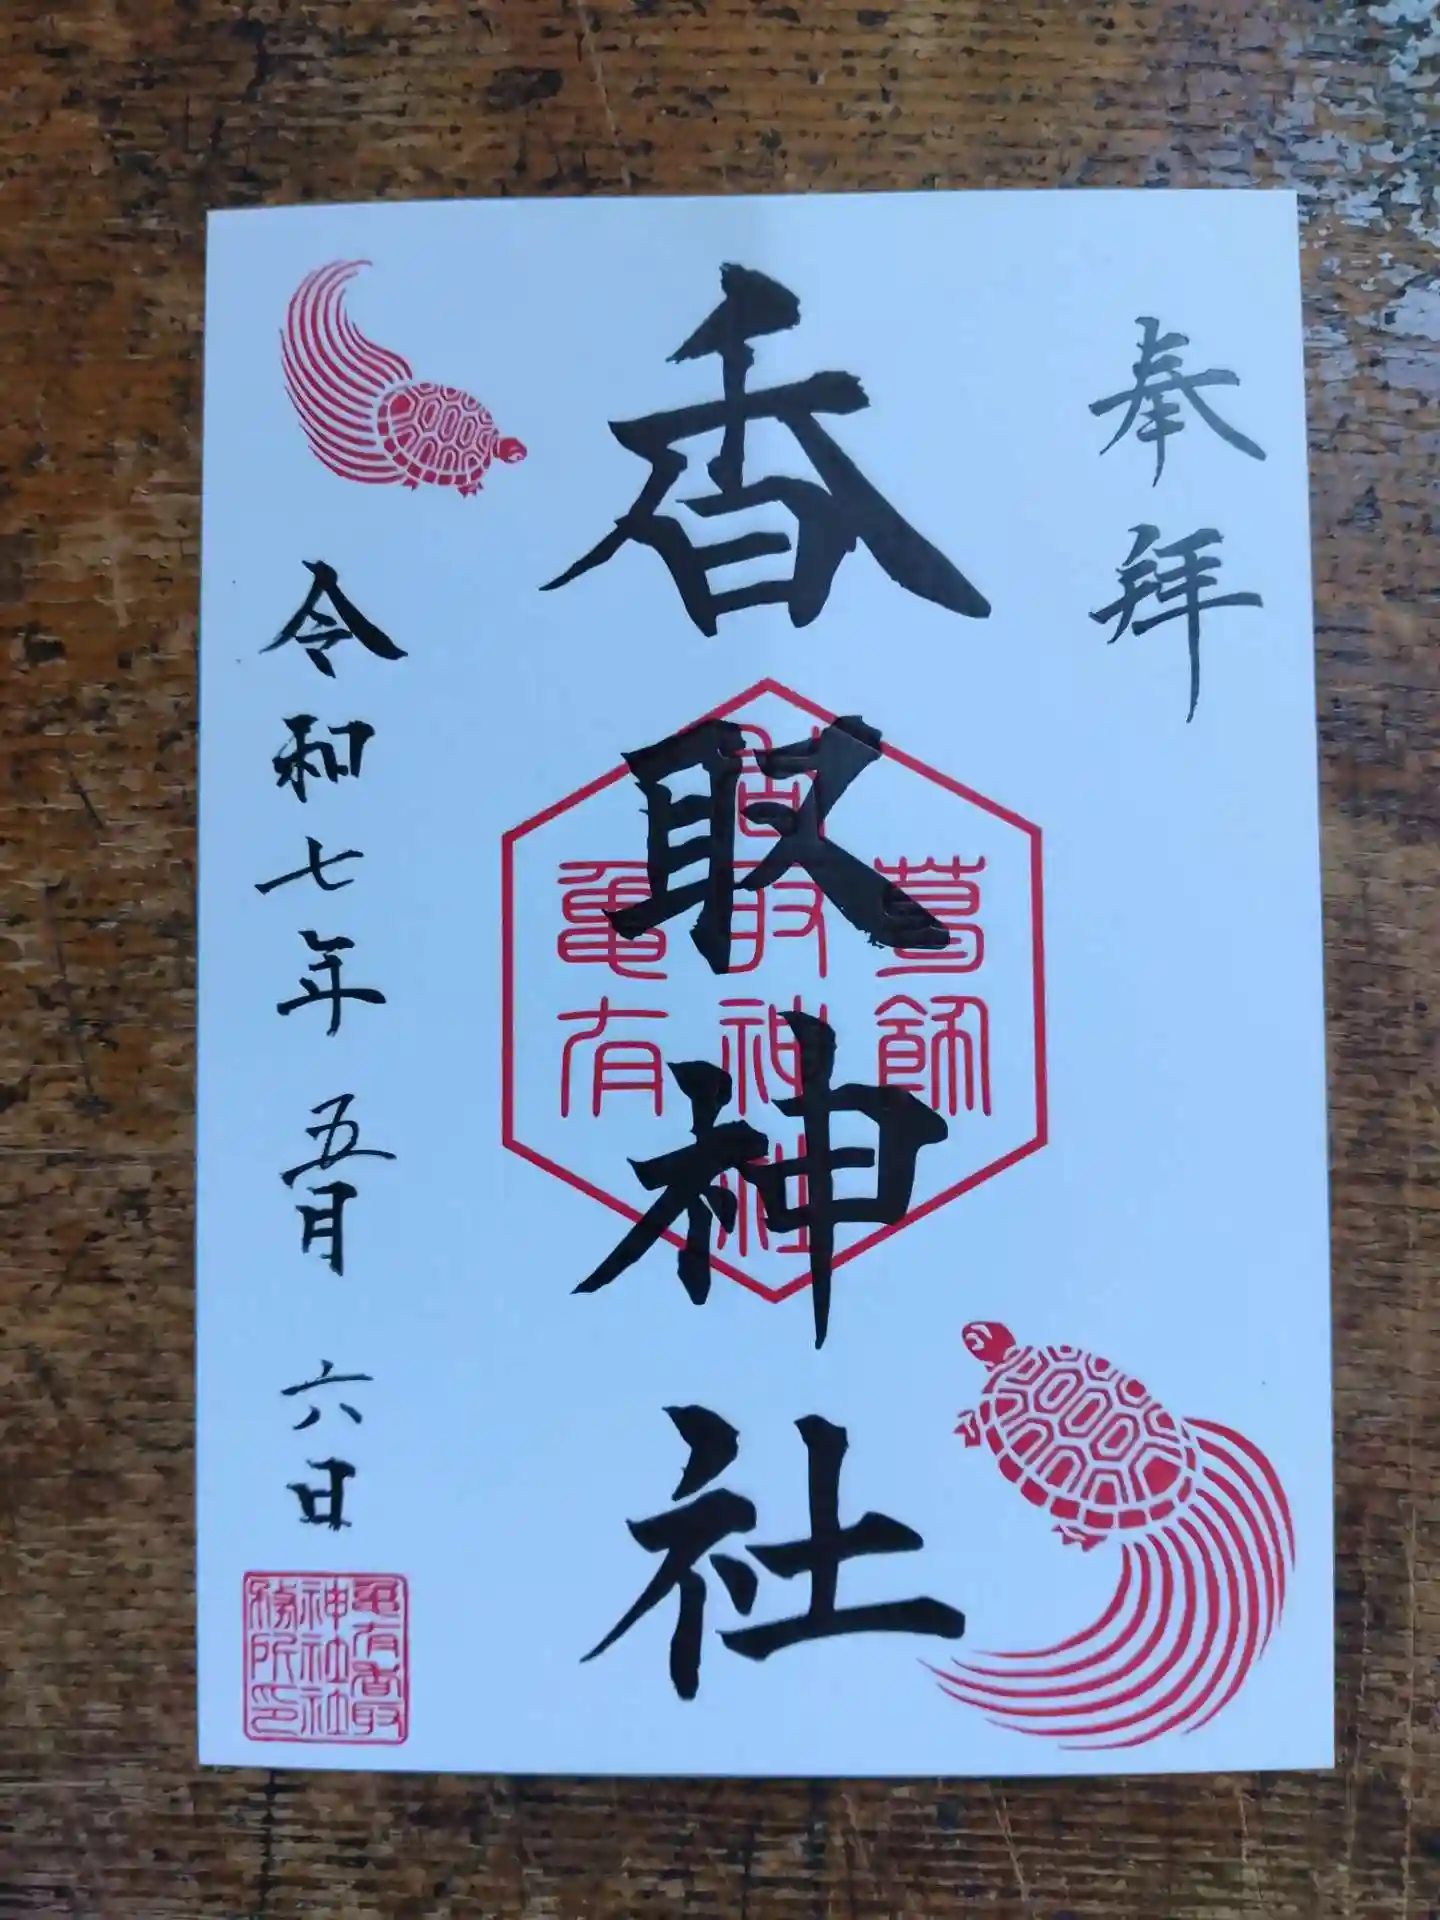 奉拝
香取神社
葛飾
香取神社
亀有
令和七年五月六日
亀有香取
神社社
務所印